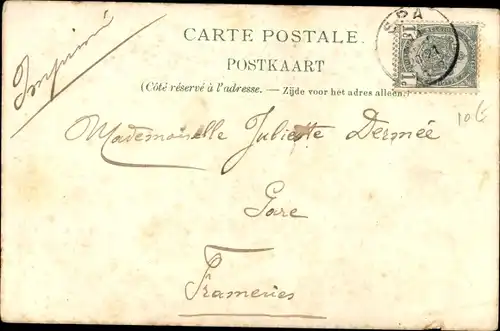 Imprimé
CARTE POSTALE.
POSTKAART
(Côté réservé à l'adresse. — Zijde voor het adres alleen.)
SPA
10 €
Mademoiselle Juliette Dermée
Gare
Frameries